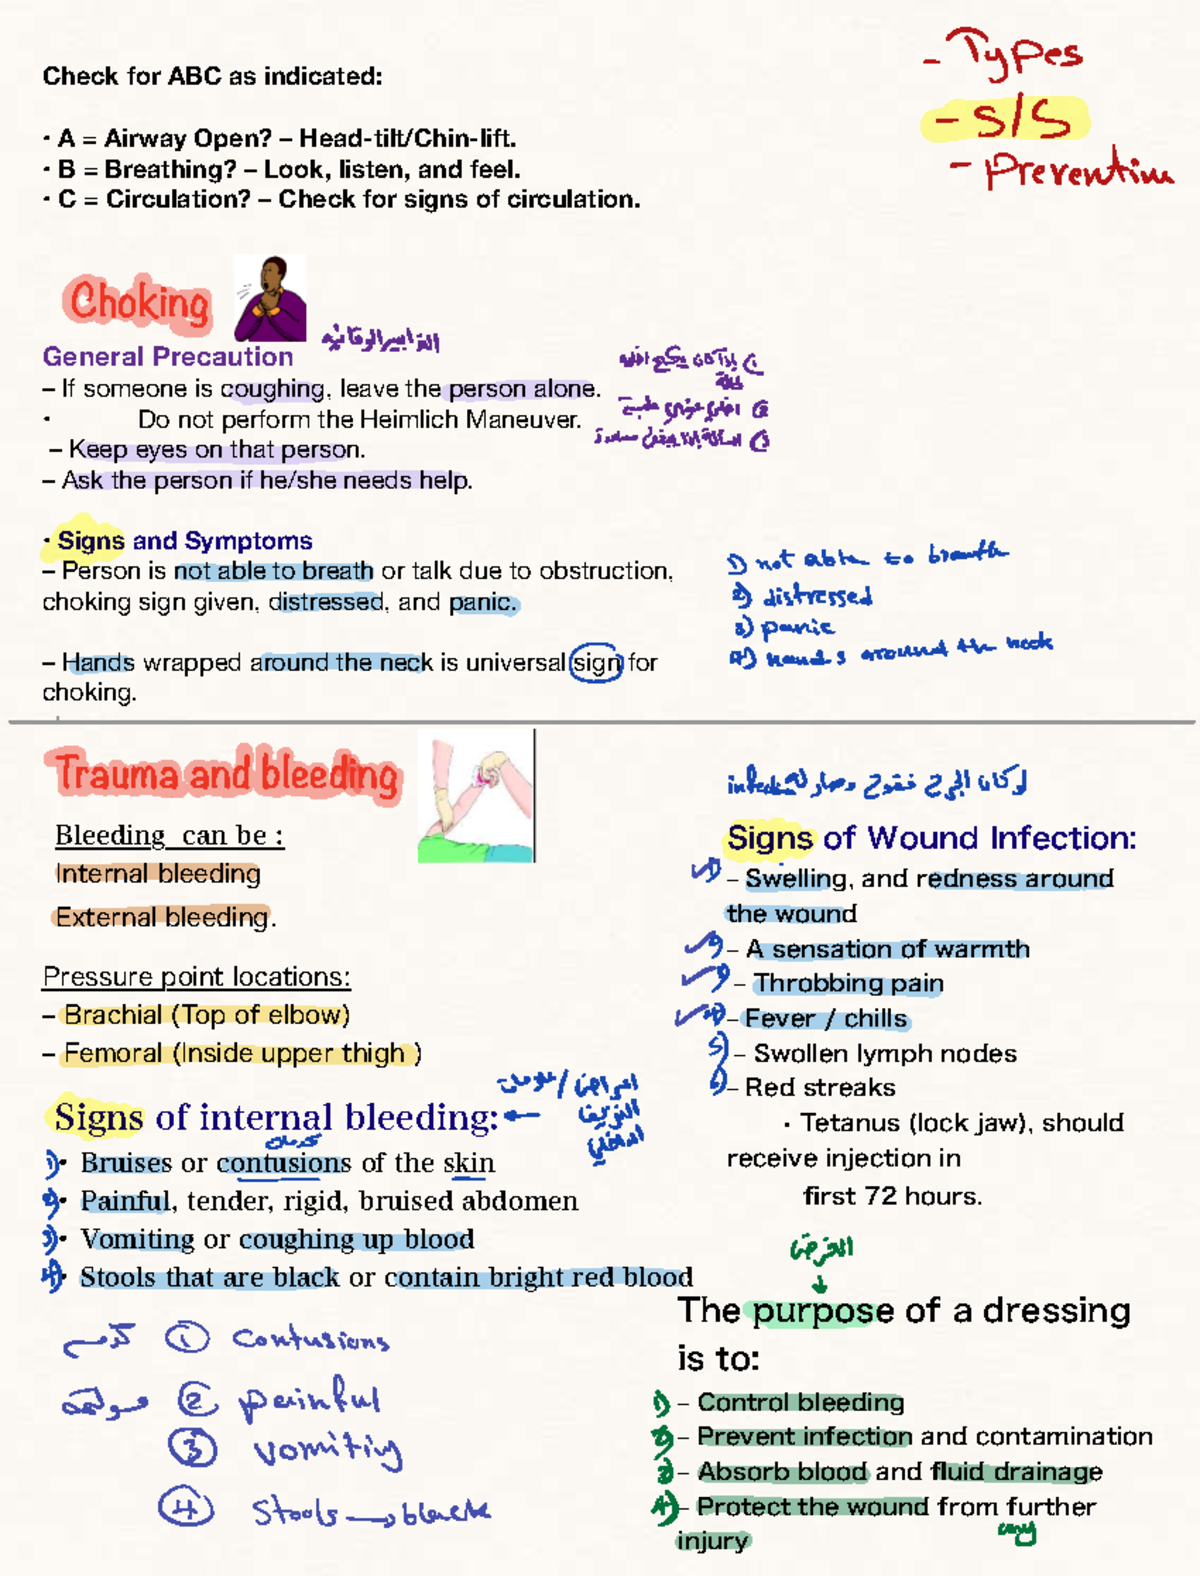 - Types
- S/S
- Prevention
Check for ABC as indicated:
· A = Airway Open? – Head-tilt/Chin-lift.
· B = Breathing? – Look, listen, and feel.
· C = Circulation? – Check for signs of circulation.
Choking
التدابير الوقائية
General Precaution
– If someone is coughing, leave the person alone.
· Do not perform the Heimlich Maneuver.
– Keep eyes on that person.
– Ask the person if he/she needs help.
· Signs and Symptoms
– Person is not able to breath or talk due to obstruction,
choking sign given, distressed, and panic.
– Hands wrapped around the neck is universal sign for
choking.
1) not able to breath
2) distressed
3) panic
4) hands around the neck
Trauma and bleeding
Bleeding can be :
Internal bleeding
External bleeding.
Pressure point locations:
– Brachial (Top of elbow)
– Femoral (Inside upper thigh )
Signs of internal bleeding:
اعراض / علامات
النزيف
الداخلي
كدمات
1) • Bruises or contusions of the skin
2) • Painful, tender, rigid, bruised abdomen
3) • Vomiting or coughing up blood
4) • Stools that are black or contain bright red blood
① contusions
② painful
③ vomitiy
④ Stools → black
لو كان الجرح مفتوح وصار له infection
Signs of Wound Infection:
1) – Swelling, and redness around
the wound
2) – A sensation of warmth
3) – Throbbing pain
4) – Fever / chills
5) – Swollen lymph nodes
6) – Red streaks
· Tetanus (lock jaw), should
receive injection in
first 72 hours.
الغرض
↓
The purpose of a dressing
is to:
1) – Control bleeding
2) – Prevent infection and contamination
3) – Absorb blood and fluid drainage
4) – Protect the wound from further
injury